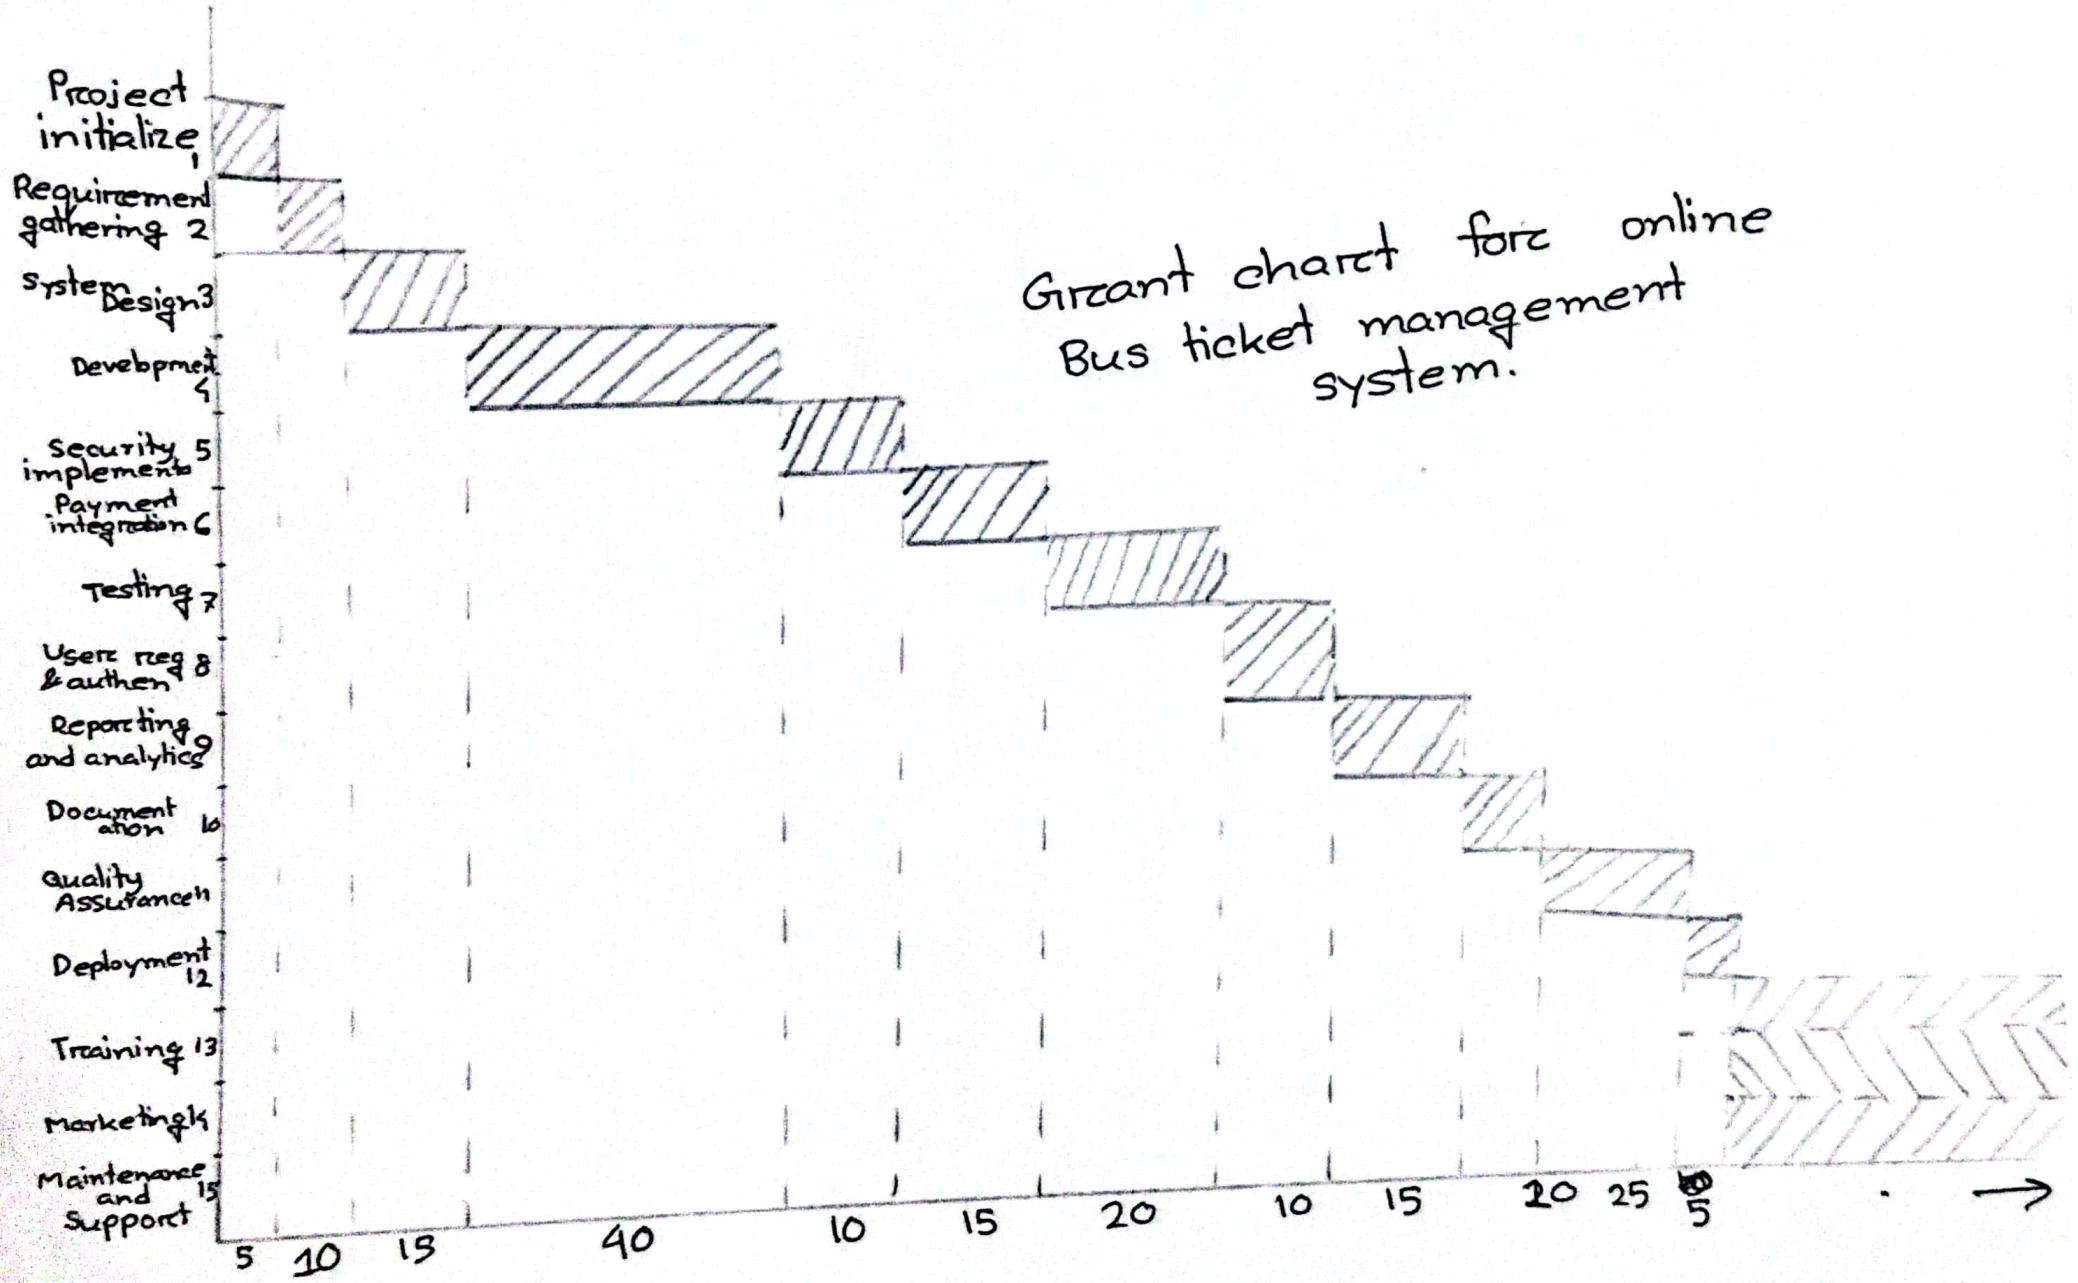 Project
initialize 1
Requirement
gathering 2
System
Design 3
Development
4
Security 5
implementa
Payment
integration 6
Testing 7
User reg 8
& authen
Reporting 9
and analytics
Document 10
ation
Quality
Assurance 11
Deployment
12
Training 13
Marketing 14
Maintenance
and 15
Support
Grant chart for online
Bus ticket management
system.
5 10 15 40 10 15 20 10 15 10 25 5